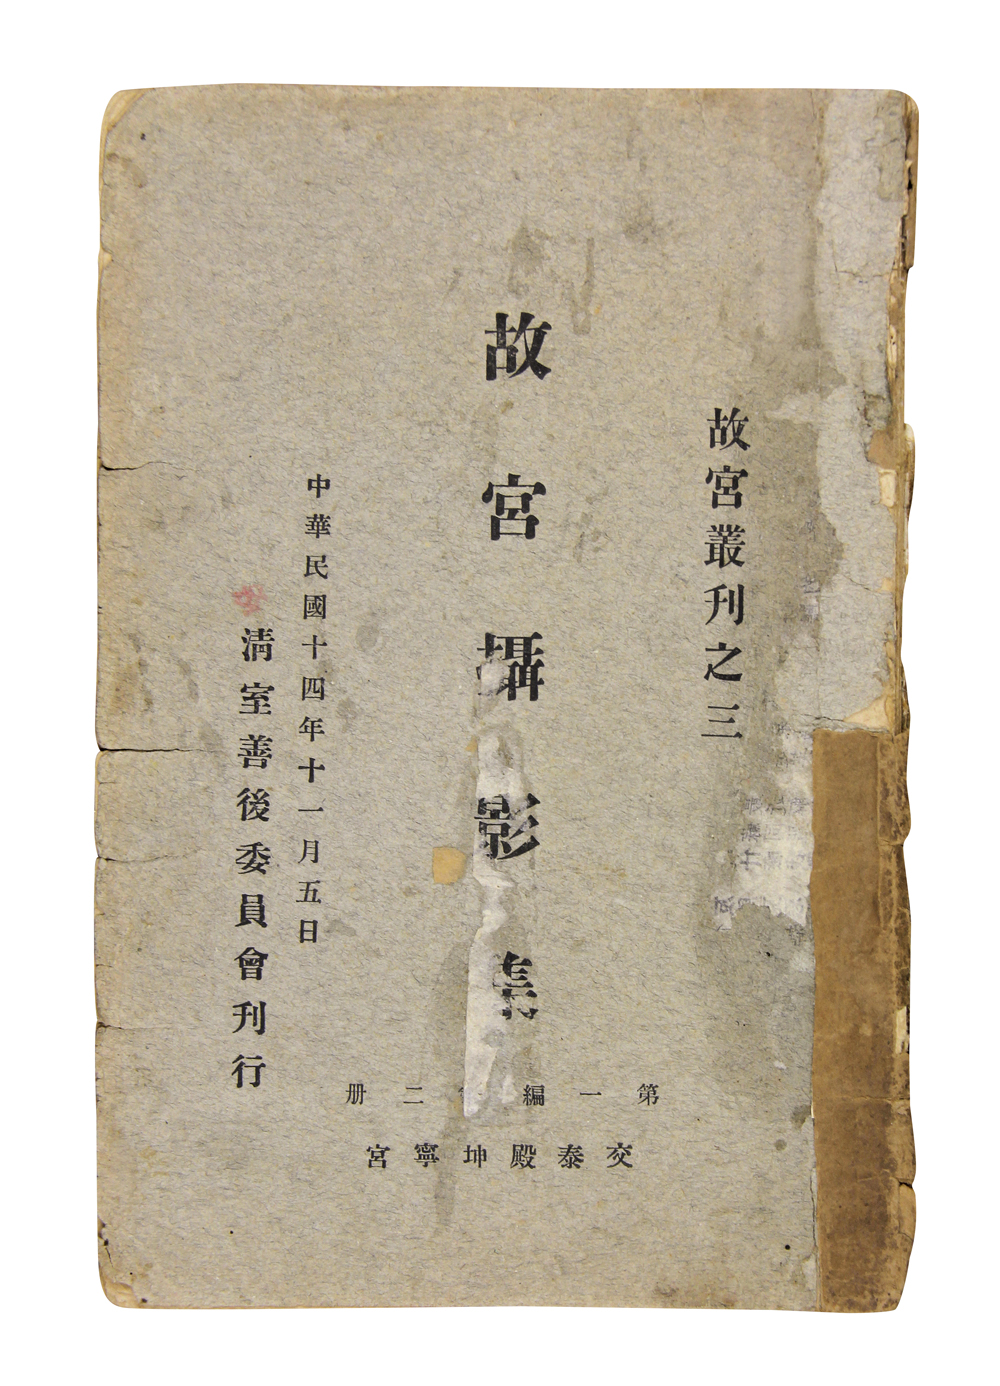 故宮叢刊之三
故宮攝影集
第一編第二册
交泰殿坤寧宮
中華民國十四年十一月五日
淸室善後委員會刊行